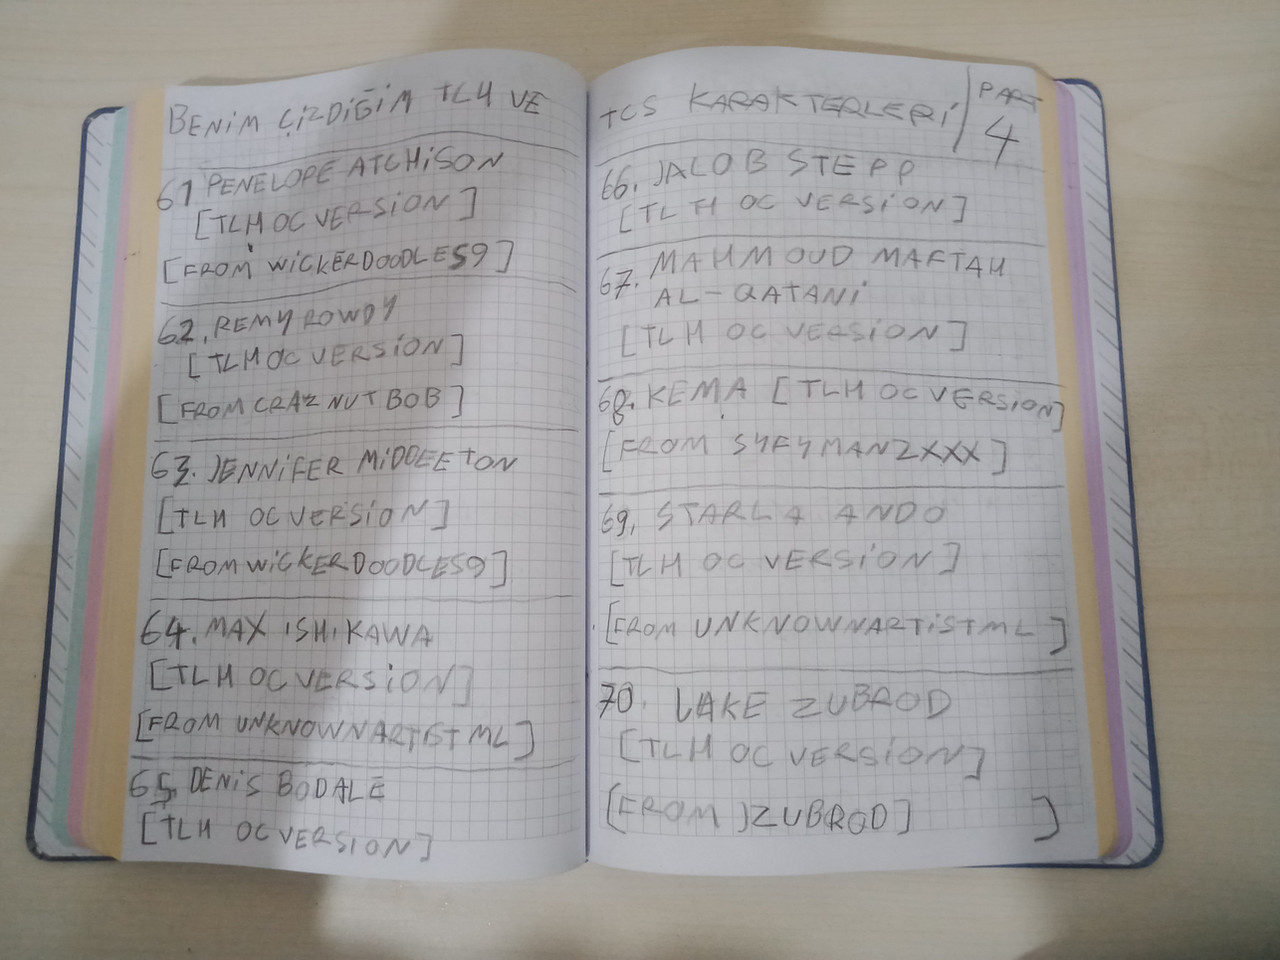 BENİM ÇİZDİĞİM TLH VE
61 PENELOPE ATCHISON
[TLH OC VERSiON]
[FROM WiCKERDOODLES9]
62. REMY ROWDY
[TLH OC VERSiON]
[FROM CRAZ NUT BOB]
63. JENNiFER MiDDLETON
[TLH OC VERSiON]
[FROM WiCKERDOODLES9]
64. MAX ISHIKAWA
[TLH OC VERSiON]
[FROM UNKNOWNARTIST ML]
65. DENiS BODALE
[TLH OC VERSION]
TCS KARAKTERLERi
PART
4
66. JALOB STEPP
[TLTH OC VERSiON]
67. MAHMOUD MAFTAH
AL-QATANi
[TLH OC VERSiON]
68. KEMA [TLH OC VERSiON]
[FROM SYFYMANZXXX]
69. STARLA ANDO
[TLH OC VERSiON]
[FROM UNKNOWNARTiSTML]
70. LAKE ZUBROD
[TLH OC VERSiON]
[FROM JZUBROD] ]